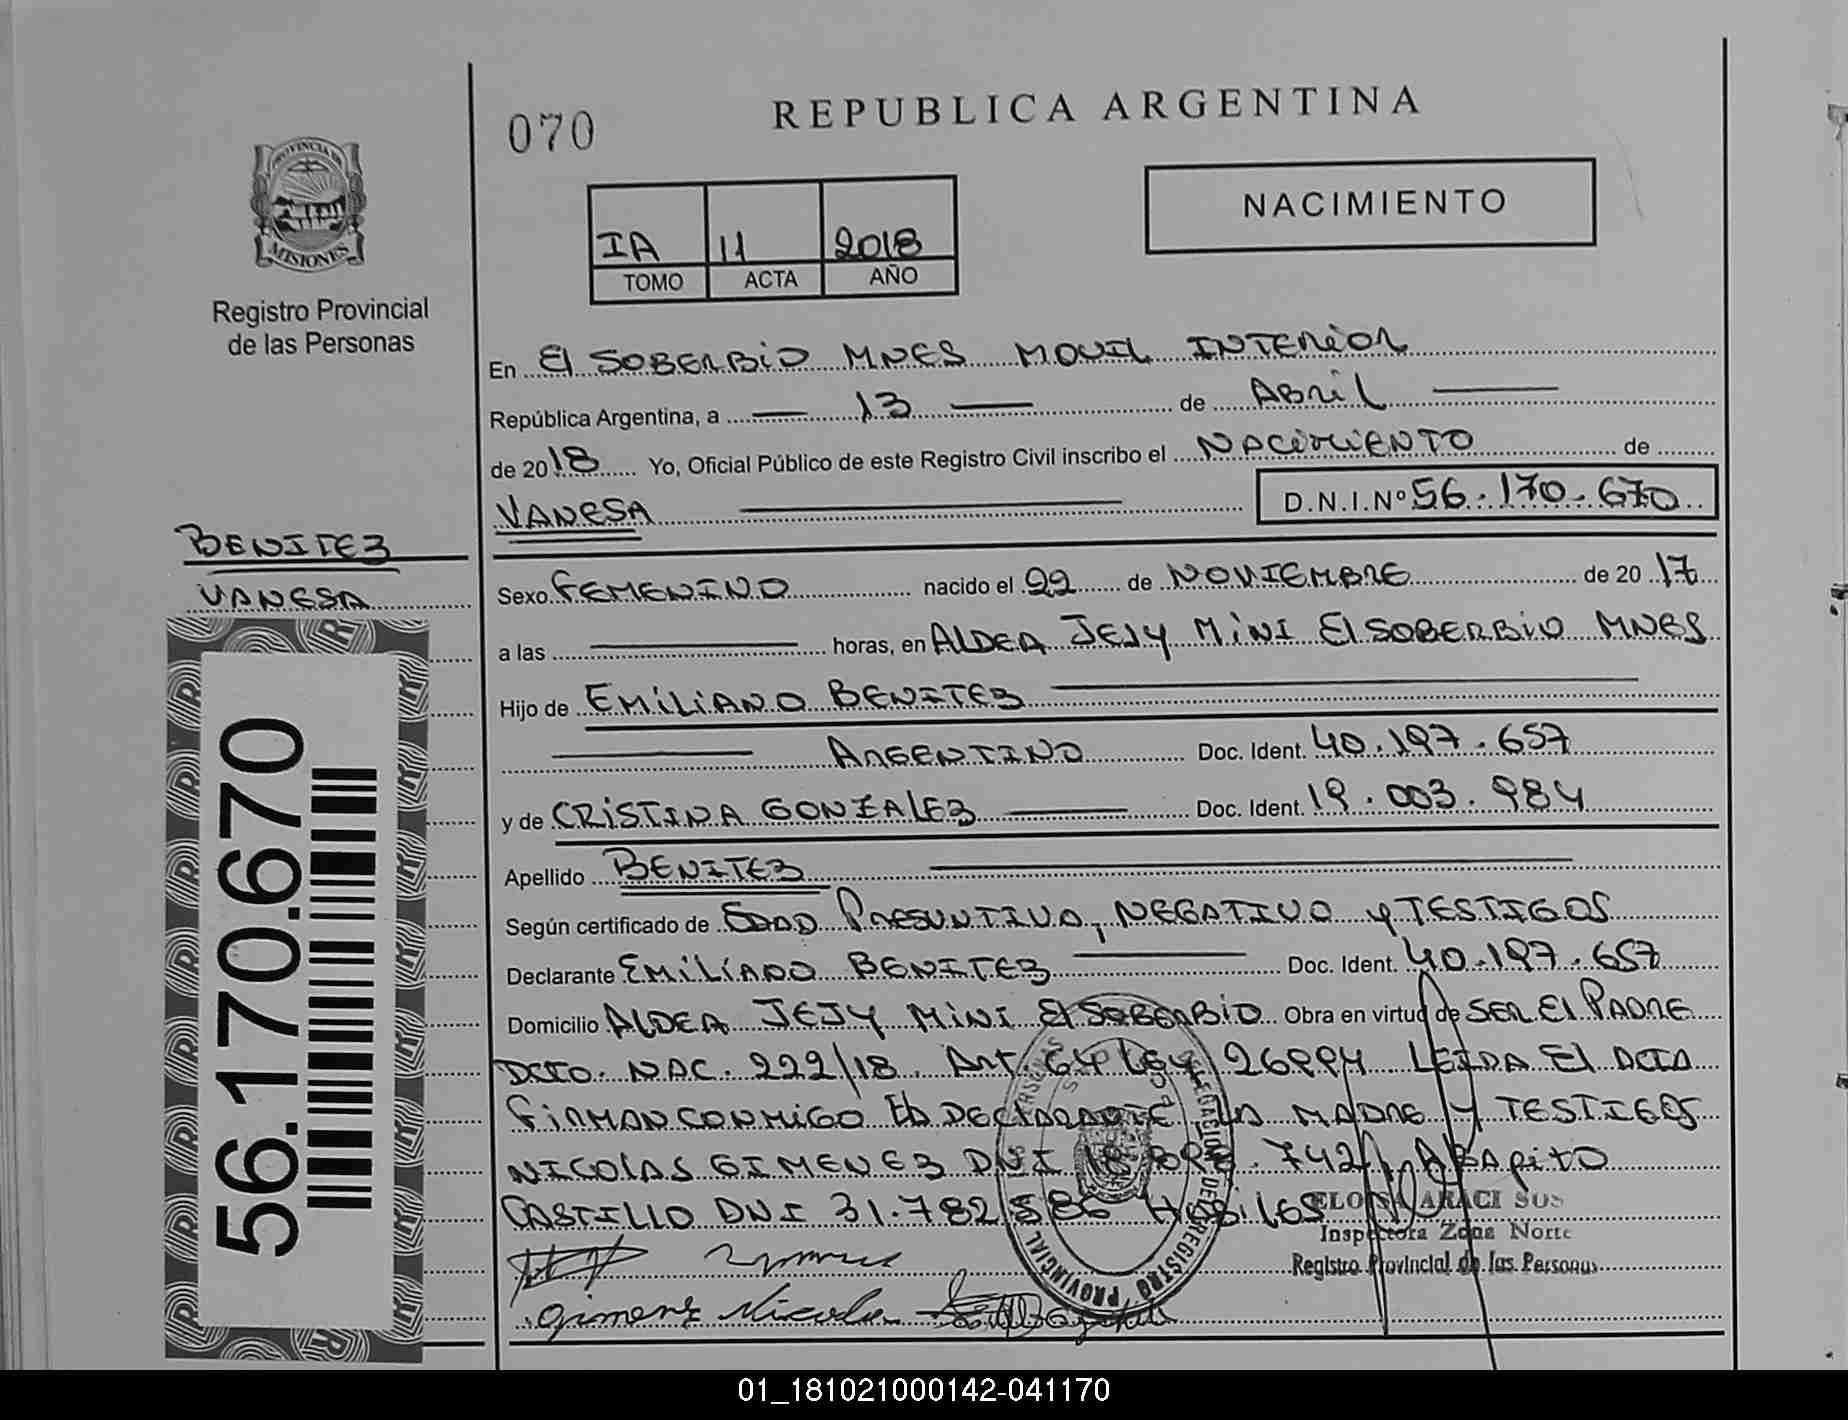 070
REPUBLICA ARGENTINA
NACIMIENTO
IA 11 2018
TOMO ACTA AÑO
PROVINCIA DE
MISIONES
Registro Provincial
de las Personas
En El SOBERBIO MNES MOVIL INTERIOR
República Argentina, a 13 de Abril
de 2018 Yo, Oficial Público de este Registro Civil inscribo el NACIMIENTO de
VANESA D.N.I.Nº 56.170.670
BENITEZ
VANESA
56.170.670
Sexo FEMENINO nacido el 22 de NOVIEMBRE de 2017
a las horas, en ALDEA JEJY MINI El SOBERBIO MNES
Hijo de EMILIANO BENITEZ
ARGENTINO Doc. Ident. 40.197.657
y de CRISTINA GONZALEZ Doc. Ident. 19.003.984
Apellido BENITEZ
Según certificado de EDAD PRESUNTIVO, NEGATIVO y TESTIGOS
Declarante EMILIANO BENITEZ Doc. Ident. 40.197.657
Domicilio ALDEA JEJY MINI El SOBERBIO Obra en virtud de SER El PADRE
DCTO. NAC. 222/18. Art. 64 Ley 26994 LEIDA El ACTA
FIRMAN CONMIGO El DECLARANTE LA MADRE y TESTIGOS
NICOLAS GIMENEZ DNI 742 AGAPITO
CASTILLO DNI 31.782.586 HABILES
ELOISA ARACI SOS
Inspectora Zona Norte
Registro Provincial de las Personas
Gimenez Nicolas
REGISTRO PROVINCIAL
01_181021000142-041170